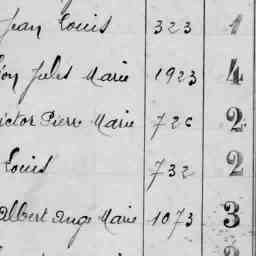 Jean Louis 323 1
Jules Marie 1923 4
Victor Pierre Marie 726 2
Louis 732 2
Albert Ange Marie 1073 3